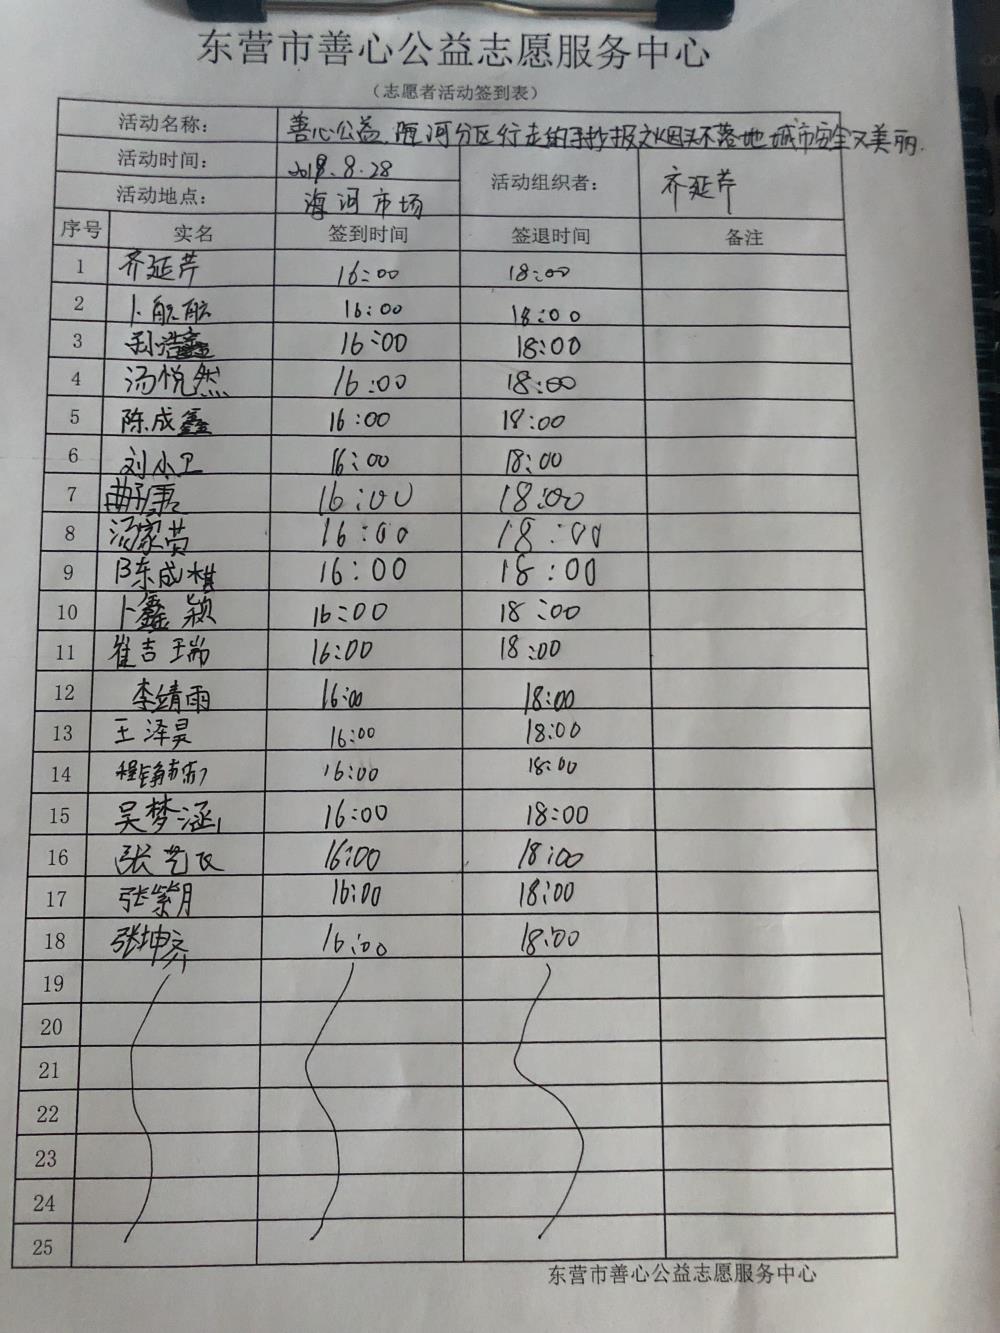 东营市善心公益志愿服务中心
（志愿者活动签到表）
活动名称： 善心公益 河分区行走的手抄报之烟头不落地城市安全又美丽.
活动时间： 8.28 活动组织者： 齐延芹
活动地点： 海河市场
序号 实名 签到时间 签退时间 备注
1 齐延芹 16:00 18:00
2 卜航航 16:00 18:00
3 浩鑫 16:00 18:00
4 汤悦然 16:00 18:00
5 陈成鑫 16:00 18:00
6 刘小卫 16:00 18:00
7 16:00 18:00
8 16:00 18:00
9 陈成棋 16:00 18:00
10 卜鑫颖 16:00 18:00
11 崔吉瑞 16:00 18:00
12 李靖雨 16:00 18:00
13 王泽昊 16:00 18:00
14 程 16:00 18:00
15 吴梦涵 16:00 18:00
16 张艺 16:00 18:00
17 张紫月 16:00 18:00
18 张坤齐 16:00 18:00
19
20
21
22
23
24
25
东营市善心公益志愿服务中心